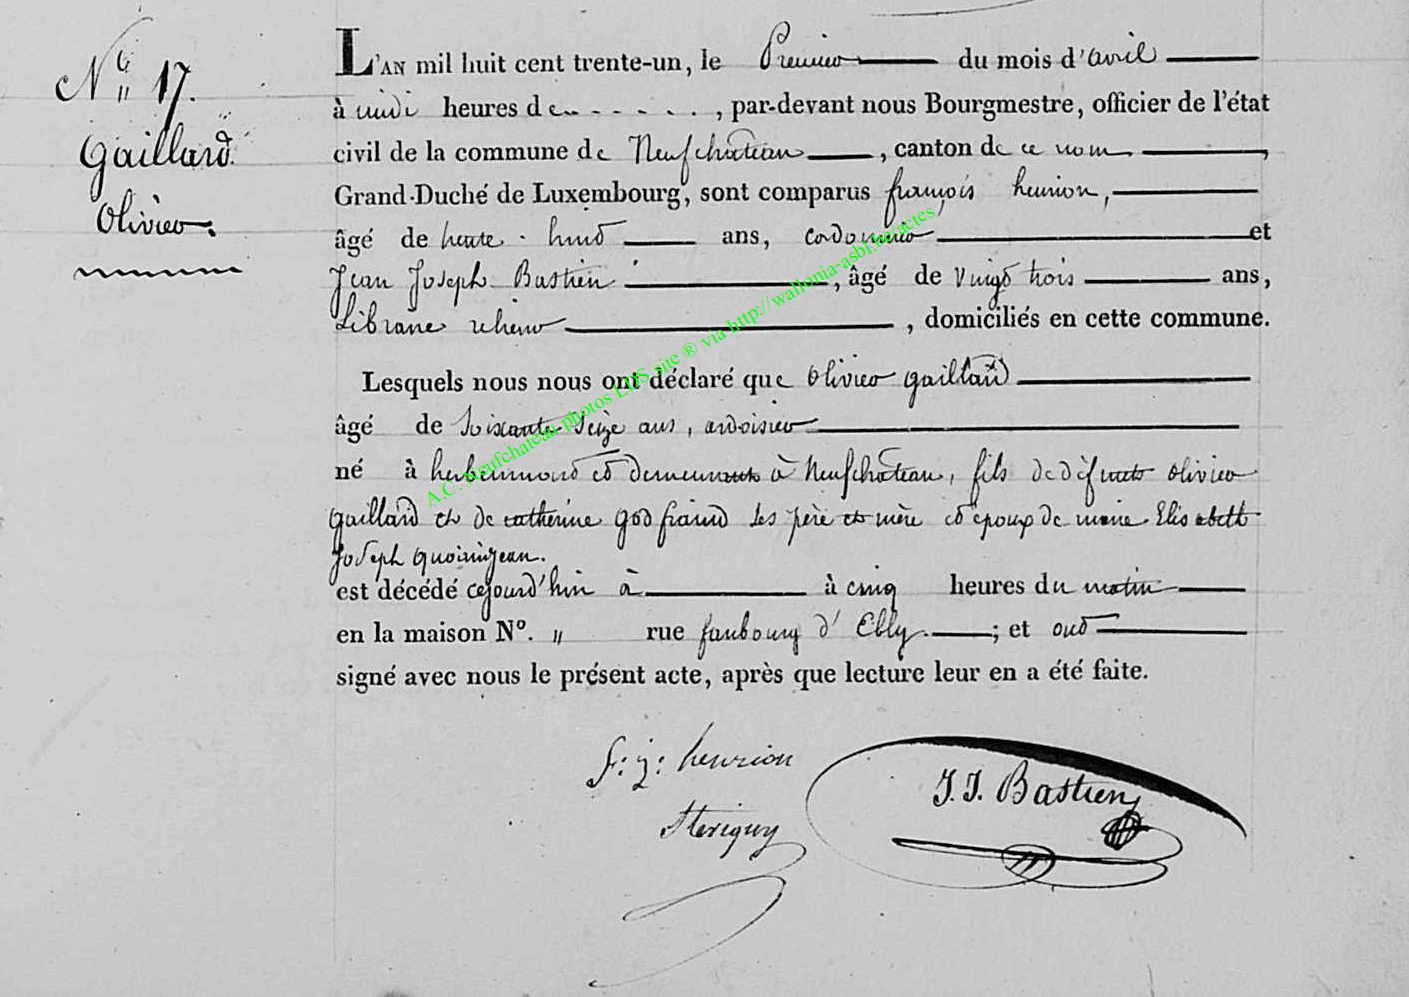 N° 17.
Gaillard
Olivier.
L'AN mil huit cent trente-un, le Premier du mois d'avril
à midi heures de . . . . . . , par-devant nous Bourgmestre, officier de l'état
civil de la commune de Neufchateau , canton de ce nom ,
Grand-Duché de Luxembourg, sont comparus françois henrion,
âgé de trente-huit ans, cordonnier et
Jean Joseph Bastien , âgé de vingt trois ans,
Libraire relieur , domiciliés en cette commune.
Lesquels nous nous ont déclaré que olivier gaillard
âgé de soixante-seize ans, ardoisier
né à herbeumont et demeurant à Neufchateau, fils de défunts olivier
gaillard et de catherine godfraind ses père et mère et époux de marie Elisabeth
Joseph quoirinjean.
est décédé cejourd'hui à à cinq heures du matin
en la maison N°. " rue faubourg d'Ebly. ; et ont
signé avec nous le présent acte, après que lecture leur en a été faite.
f: j: henrion
J. J. Bastien
A.C. Neufchateau photos LDS site ® via http://wallonia-asbl.be/actes